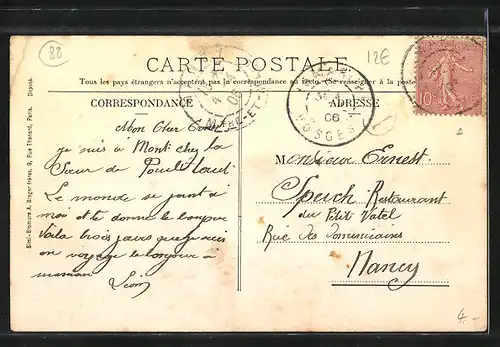 88
12E
CARTE POSTALE
Tous les pays étrangers n'acceptent pas la correspondance au recto. (Se renseigner à la poste
CORRESPONDANCE
ADRESSE
06
VOSGES
RE-ET-
10
Mon Cher
je suis à Mont chez la
Sœur de
Le monde se joint à
moi et te donne le bonjour
Voila trois jours que je suis
en voyage le bonjour à
maman
Léon
Monsieur Ernest
Spech Restaurant
du Petit Vatel
Rue des Dominicains
Nancy
4.-
Simi-Bromure A. Breger frères, 9, Rue Thénard, Paris. Déposé.